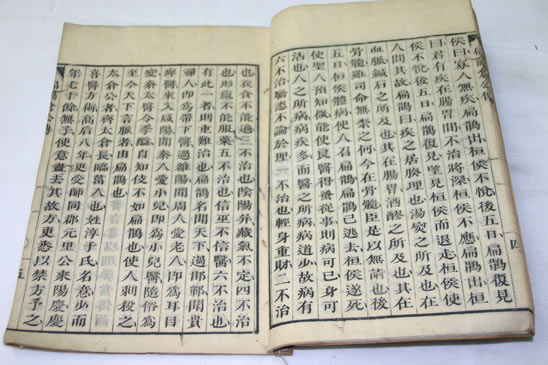 侯曰寡人無疾扁鵲出桓侯不悅後五日扁鵲復見
曰君有疾在腸胃間不治將深桓侯不應扁鵲出桓
侯不悅後五日扁鵲復見望見桓侯而退走桓侯使
人問其故扁鵲曰疾之居腠理也湯熨之所及也在
血脈鍼石之所及也其在腸胃酒醪之所及也其在
骨髓雖司命無奈之何今在骨髓臣是以無請也後
五日桓侯體病使人召扁鵲扁鵲已逃去桓侯遂死
使聖人預知微能使良醫得蚤從事則疾可已身可
活也人之所病病疾多而醫之所病病道少故病有
六不治驕恣不論於理一不治也輕身重財二不治
四
也衣食不能適三不治也陰陽并藏氣不定四不治
也形羸不能服藥五不治也信巫不信醫六不治也
有此一者則重難治也扁鵲名聞天下過邯鄲聞貴
婦人即爲帶下醫過雒陽聞周人愛老人即爲耳目
痺醫來入咸陽聞秦人愛小兒即爲小兒醫隨俗爲
變秦太醫令李醯自知伎不如扁鵲也使人刺殺之
至今天下言脈者由扁鵲也
太倉公者齊太倉長臨菑人也姓淳于氏名意少而
喜醫方術高后八年更受師同郡元里公乘陽慶慶
年七十餘無子使意盡去其故方更悉以禁方予之
五